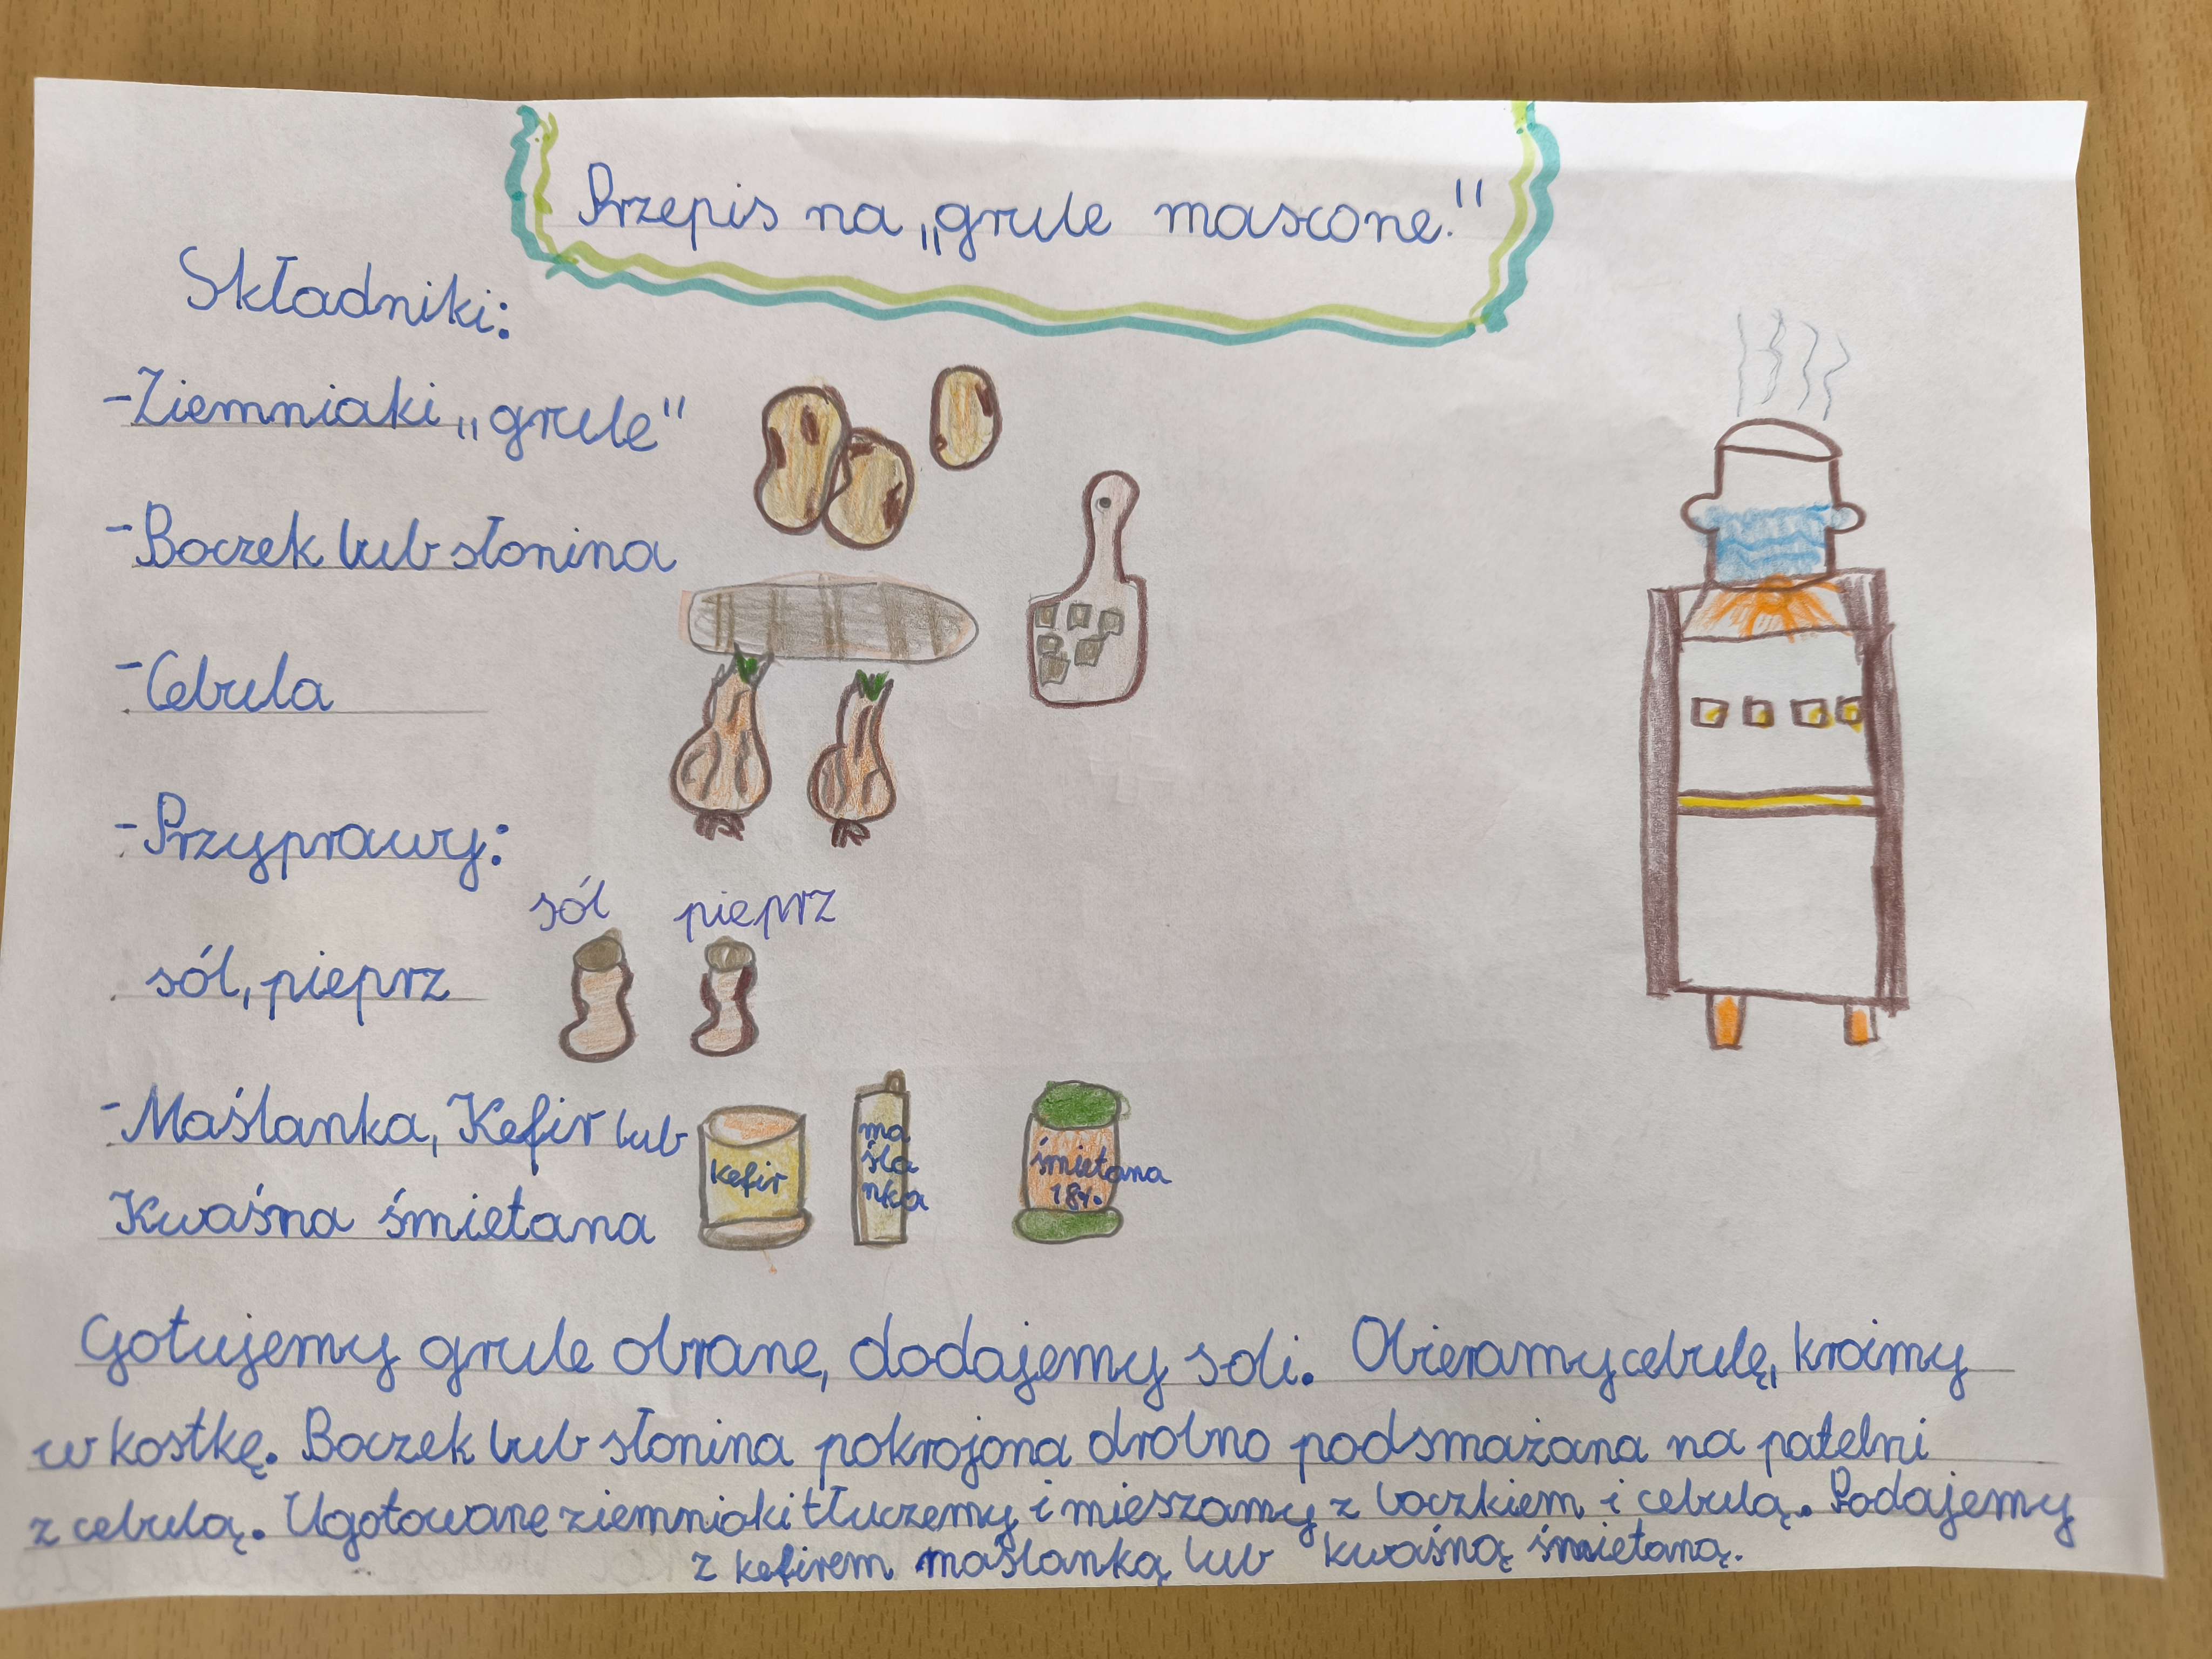 Przepis na „grule mascone."
Składniki:
- Ziemniaki „grule"
- Boczek lub słonina
- Cebula
- Przyprawy:
sól pieprz
sól, pieprz
- Maślanka, Kefir lub
Kwaśna śmietana
kefir
ma
śla
nka
śmietana
18%
Gotujemy grule obrane, dodajemy soli. Obieramy cebulę, kroimy
w kostkę. Boczek lub słonina pokrojona drobno podsmażana na patelni
z cebulą. Ugotowane ziemniaki tłuczemy i mieszamy z boczkiem i cebulą. Podajemy
z kefirem maślanką lub kwaśną śmietaną.